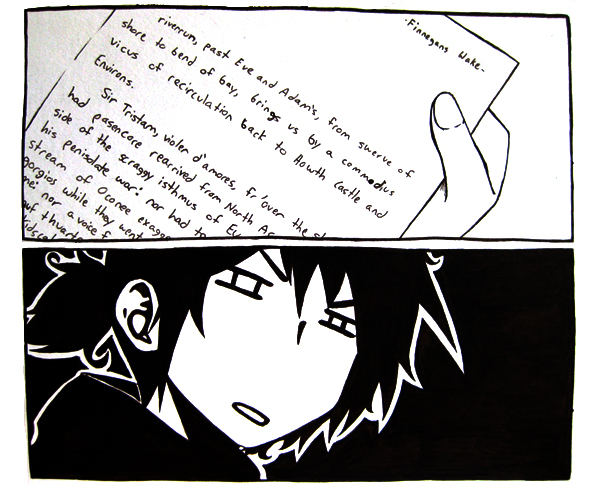 -Finnegans Wake-
riverrun, past Eve and Adam's, from swerve of
shore to bend of bay, brings us by a commodius
vicus of recirculation back to Howth Castle and
Environs.
Sir Tristam, violer d'amores, fr'over the
had pasencore rearrived from North
side of the scraggy isthmus of
his penisolate war: nor had
stream of Oconee
gorgios while they went
me: nor a voice